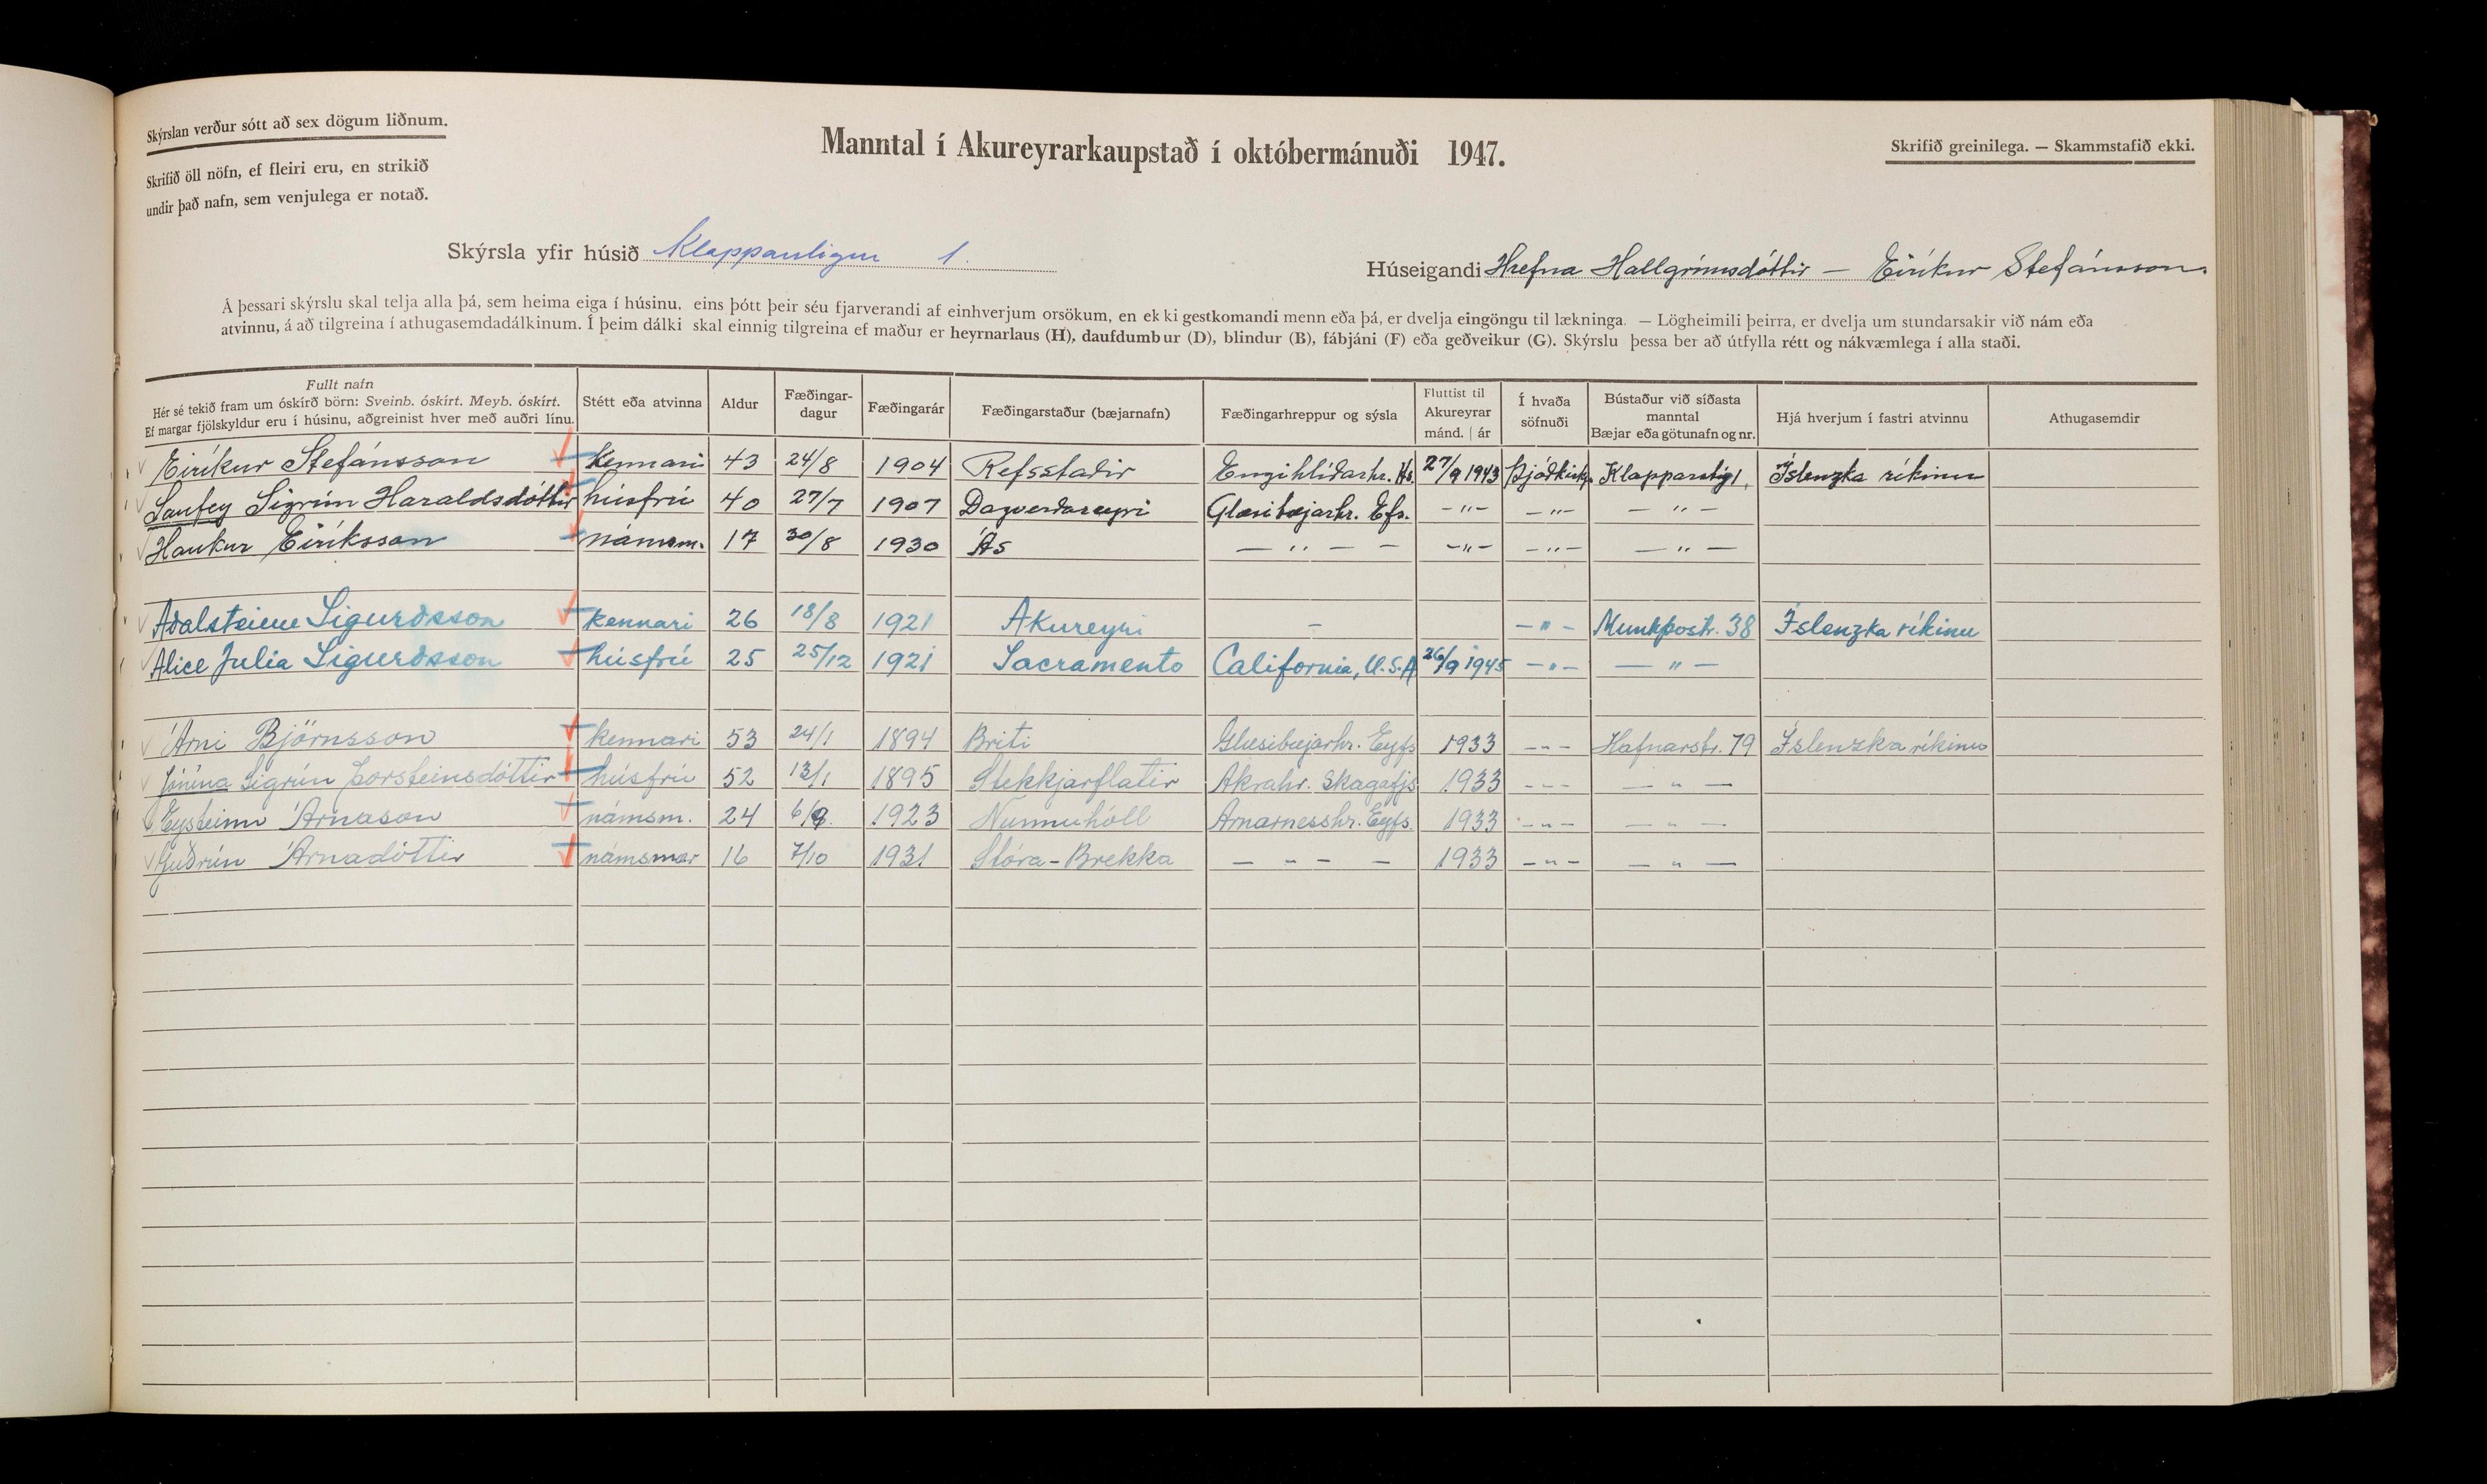 Skýrslan verður sótt að sex dögum liðnum.
Skrifið öll nöfn, ef fleiri eru, en strikið
undir það nafn, sem venjulega er notað.
Manntal í Akureyrarkaupstað í októbermánuði 1947.
Skrifið greinilega. — Skammstafið ekki.
Skýrsla yfir húsið Klapparstígur 1.
Húseigandi Hrefna Hallgrímsdóttir — Eiríkur Stefánsson.
Á þessari skýrslu skal telja alla þá, sem heima eiga í húsinu, eins þótt þeir séu fjarverandi af einhverjum orsökum, en ekki gestkomandi menn eða þá, er dvelja eingöngu til lækninga. — Lögheimili þeirra, er dvelja um stundarsakir við nám eða
atvinnu, á að tilgreina í athugasemdadálkinum. Í þeim dálki skal einnig tilgreina ef maður er heyrnarlaus (H), daufdumbur (D), blindur (B), fábjáni (F) eða geðveikur (G). Skýrslu þessa ber að útfylla rétt og nákvæmlega í alla staði.
Fullt nafn
Hér sé tekið fram um óskírð börn: Sveinb. óskírt. Meyb. óskírt.
Ef margar fjölskyldur eru í húsinu, aðgreinist hver með auðri línu.
Stétt eða atvinna
Aldur
Fæðingar-
dagur
Fæðingarár
Fæðingarstaður (bæjarnafn)
Fæðingarhreppur og sýsla
Fluttist til
Akureyrar
mánd. | ár
Í hvaða
söfnuði
Bústaður við síðasta
manntal
Bæjar eða götunafn og nr.
Hjá hverjum í fastri atvinnu
Athugasemdir
Eiríkur Stefánsson kennari 43 24/8 1904 Refsstaðir Engihlíðarhr. Hs. 27/9 1943 Þjóðkirkj. Klapparstíg 1, Íslenzka ríkinu
Laufey Sigrún Haraldsdóttir húsfrú 40 27/7 1907 Dagverðareyri Glæsibæjarhr. Efs. —"— —"— — " —
Haukur Eiríksson námsm. 17 30/8 1930 Ás — " — — —"— —"— — " —
Aðalsteinn Sigurðsson kennari 26 18/8 1921 Akureyri — —"— Munkþvstr. 38 Íslenzka ríkinu
Alice Julia Sigurðsson húsfrú 25 25/12 1921 Sacramento California, U.S.A 26/9 1945 —"— — " —
Árni Björnsson kennari 53 24/1 1894 Briti Glæsibæjarhr. Eyfs 1933 —"— Hafnarstr. 79 Íslenzka ríkinu
Jónína Sigrún Þorsteinsdóttir húsfrú 52 13/1 1895 Stekkjarflatir Akrahr. Skagafjs 1933 —"— — " —
Eysteinn Árnason námsm. 24 6/8. 1923 Nunnuhóll Arnarnesshr. Eyfs. 1933 —"— — " —
Guðrún Árnadóttir námsmær 16 7/10 1931 Stóra-Brekka — " — — 1933 —"— — " —